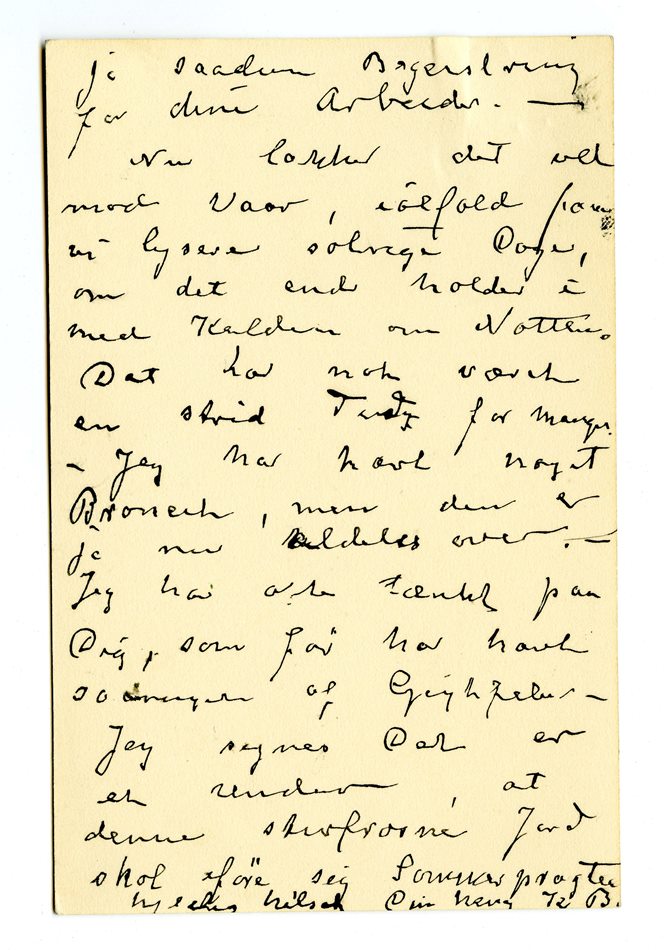 ja saadan Begejstring
for dine Arbejder. —
Nu lakker det vel
mod Vaar, ialfald faar
vi lysere solrige Dage,
om det end holder i
med Kulden om Natten.
Det har nok været
en strid for mange.
- Jeg har havt noget
Bronchit, men den er
ja nu aldeles over. —
Jeg har ofte tænkt paa
Dig, som før har havt
saa meget af —
Jeg synes Det er
et under, at
denne stivfrosne Jord
skal iføre sig Sommerpragten
hilsen Din